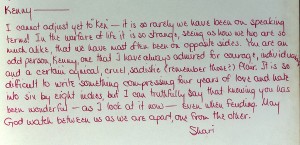 Kenny —
I cannot adjust yet to Ken — it is so rarely we have been on speaking
terms! In the warfare of life it is so strange, seeing as how we two are so
much alike, that we have most often been on opposite sides. You are an
odd person, Kenny, one that I have always admired for courage, individuality
and a certain cynical, cruel, sadistic (remember Moses?) flair. It is so
difficult to write something compressing four years of love and hate
into six by eight inches, but I can truthfully say that knowing you has
been wonderful — as I look at it now — even when feuding. May
God watch between us as we are apart, one from the other.
Shari